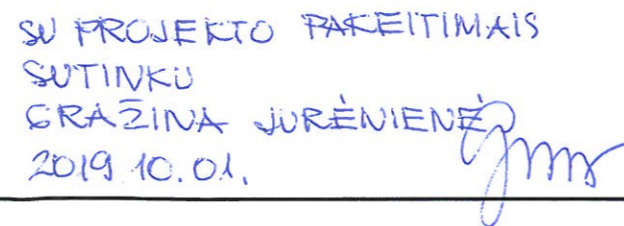 SU PROJEKTO PAKEITIMAIS
SUTINKU
GRAŽINA JURĖNIENĖ
2019 10.01.